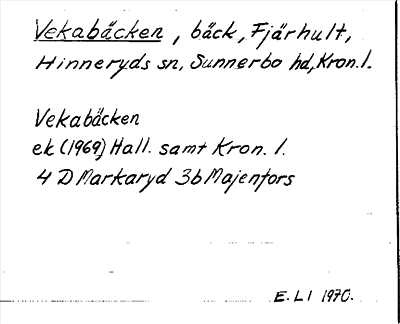 Vekabäcken, bäck, Fjärhult,
Hinneryds sn, Sunnerbo hd, Kron. l.
Vekabäcken
ek (1969) Hall. samt Kron. l.
4 D Markaryd 3b Majenfors
E. L I 1970.